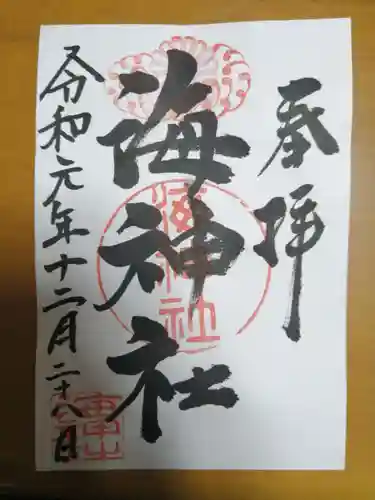 奉拝
海神社
海神社
令和元年十二月二十八日